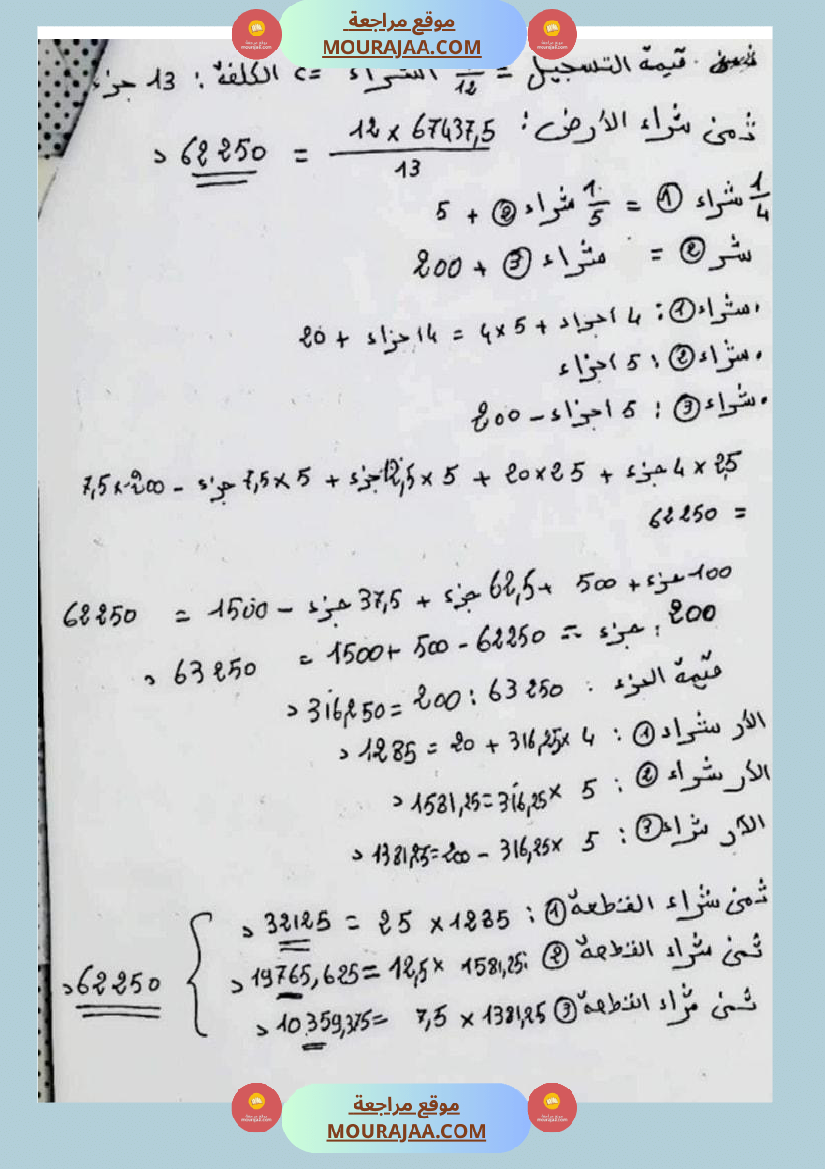 موقع مراجعة
MOURAJAA.COM
قيمة التسجيل = 1/12 الشراء => الكلفة : 13 جزء
ثمن شراء الأرض : 12 x 67437,5 / 13 = 62250 د
1/4 شراء ① = 1/5 شراء ② + 5
شر ② = شراء ③ + 200
. شراء ① : 4 اجزاء + 5×4 = 4 اجزاء + 20
. شراء ② : 5 اجزاء
. شراء ③ : 5 اجزاء - 200
25 × 4 جزء + 25×20 + 5 × 12,5 جزء + 5 × 7,5 جزء - 200×7,5
= 62250
100 جزء + 500 + 62,5 جزء + 37,5 جزء - 1500 = 62250
200 جزء = 62250 - 500 + 1500 = 63250 د
قيمة الجزء : 63250 : 200 = 316,250 د
الآر شراء ① : 4 ×316,25 + 20 = 1285 د
الآر شراء ② : 5 ×316,25 = 1581,25 د
الآر شراء ③ : 5 ×316,25 - 200 = 1381,25 د
ثمن شراء القطعة ① : 1285 × 25 = 32125 د
ثمن شراء القطعة ② : 1581,25 ×12,5 = 19765,625 د
62250 د
ثمن شراء القطعة ③ 1381,25 × 7,5 = 10359,375 د
موقع مراجعة
MOURAJAA.COM